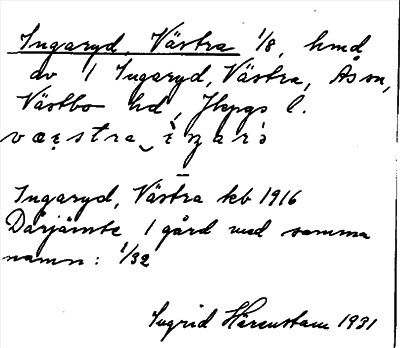 Ingaryd, Västra 1/8, hmd
av 1 Ingaryd, Västra, Ås sn,
Västbo hd, Jkpgs l.
Ingaryd, Västra kb 1916
Därjämte 1 gård med samma
namn: 1/32
Ingrid Härenstam 1931